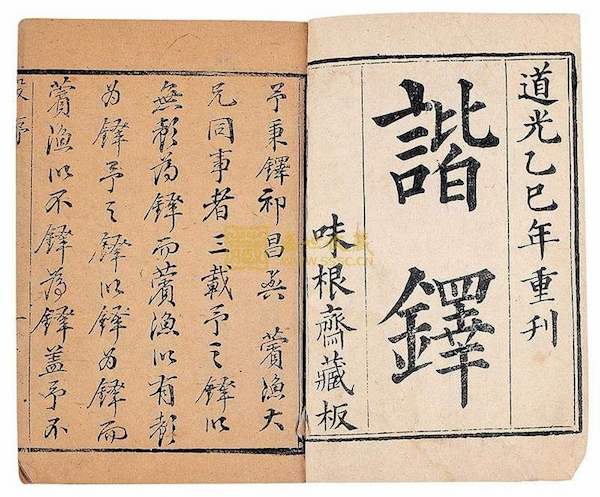 道光乙巳年重刊
諧鐸
味根齋藏板
予秉鐸祁昌與 薲漁大
兄同事者三載予之鐸以
無聲為鐸而薲漁以有聲
為鐸予之鐸以鐸為鐸而
薲漁以不鐸為鐸蓋予不
殷序 一